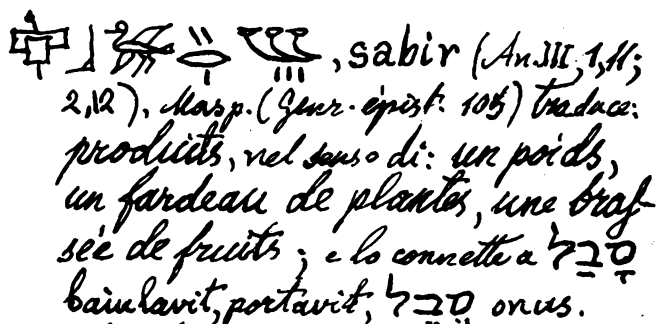 , sabir (An.III, 1,11;
2,12), Masp. (Genr. épist. 105) traduce:
produits, nel senso di: un poids,
un fardeau de plantes, une bras-
sée de fruits; e lo connette a סָבַל
baiulavit, portavit, סבל onus.